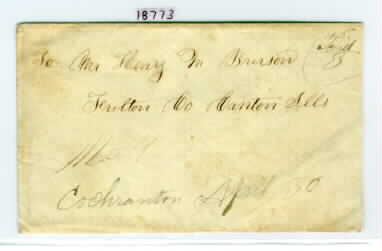 18773
Paid
To Mr Henry M Brunson
Fulton Co Canton Ills
Cochranton April 30